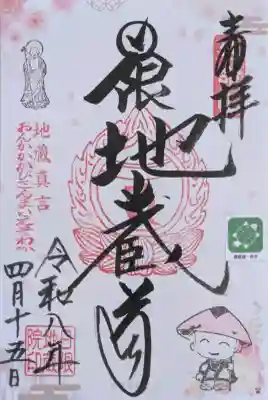 奉拝
日限地蔵尊
地蔵真言
おんかかかびさんまえいそわか
令和八年
四月十五日